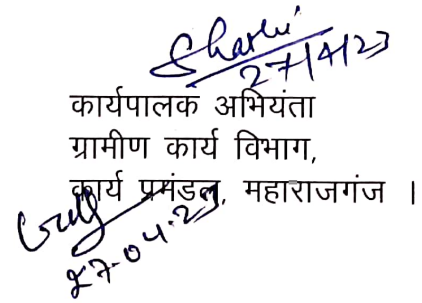 27/4/23
कार्यपालक अभियंता
ग्रामीण कार्य विभाग,
कार्य प्रमंडल, महाराजगंज ।
27.04.23